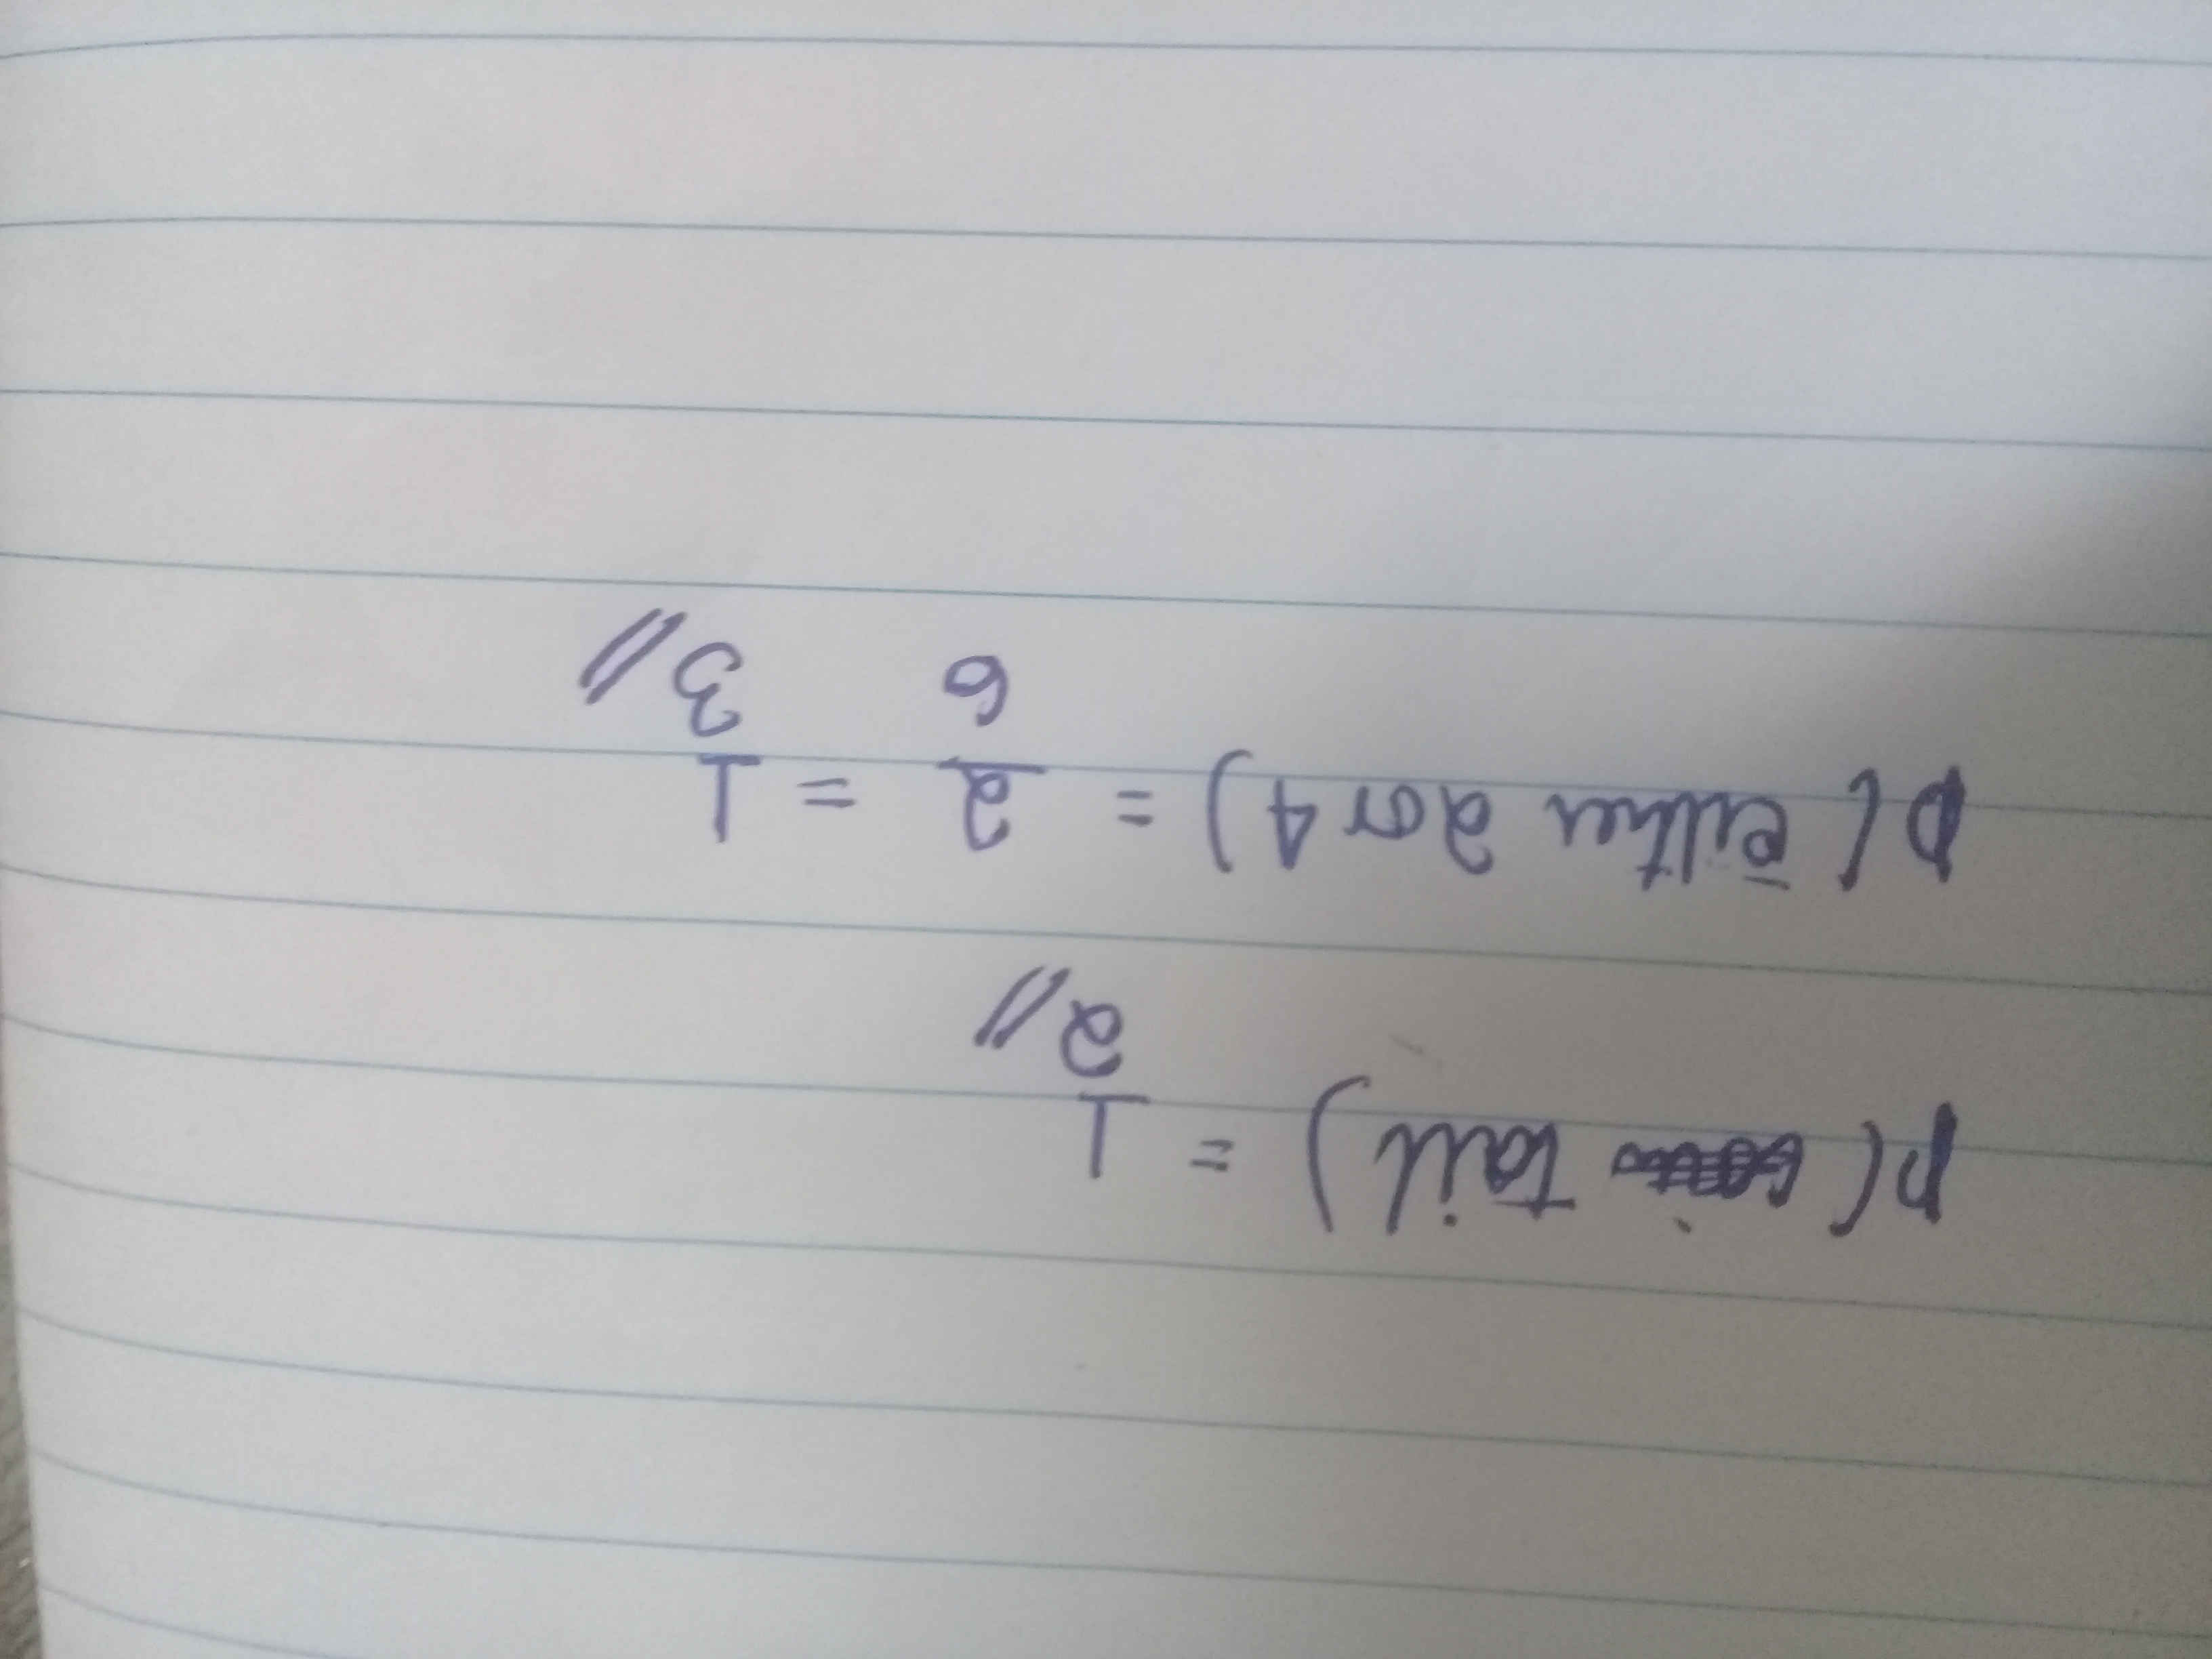 P( tail) = 1/2 //
P( either 2 or 4) = 2/6 = 1/3 //